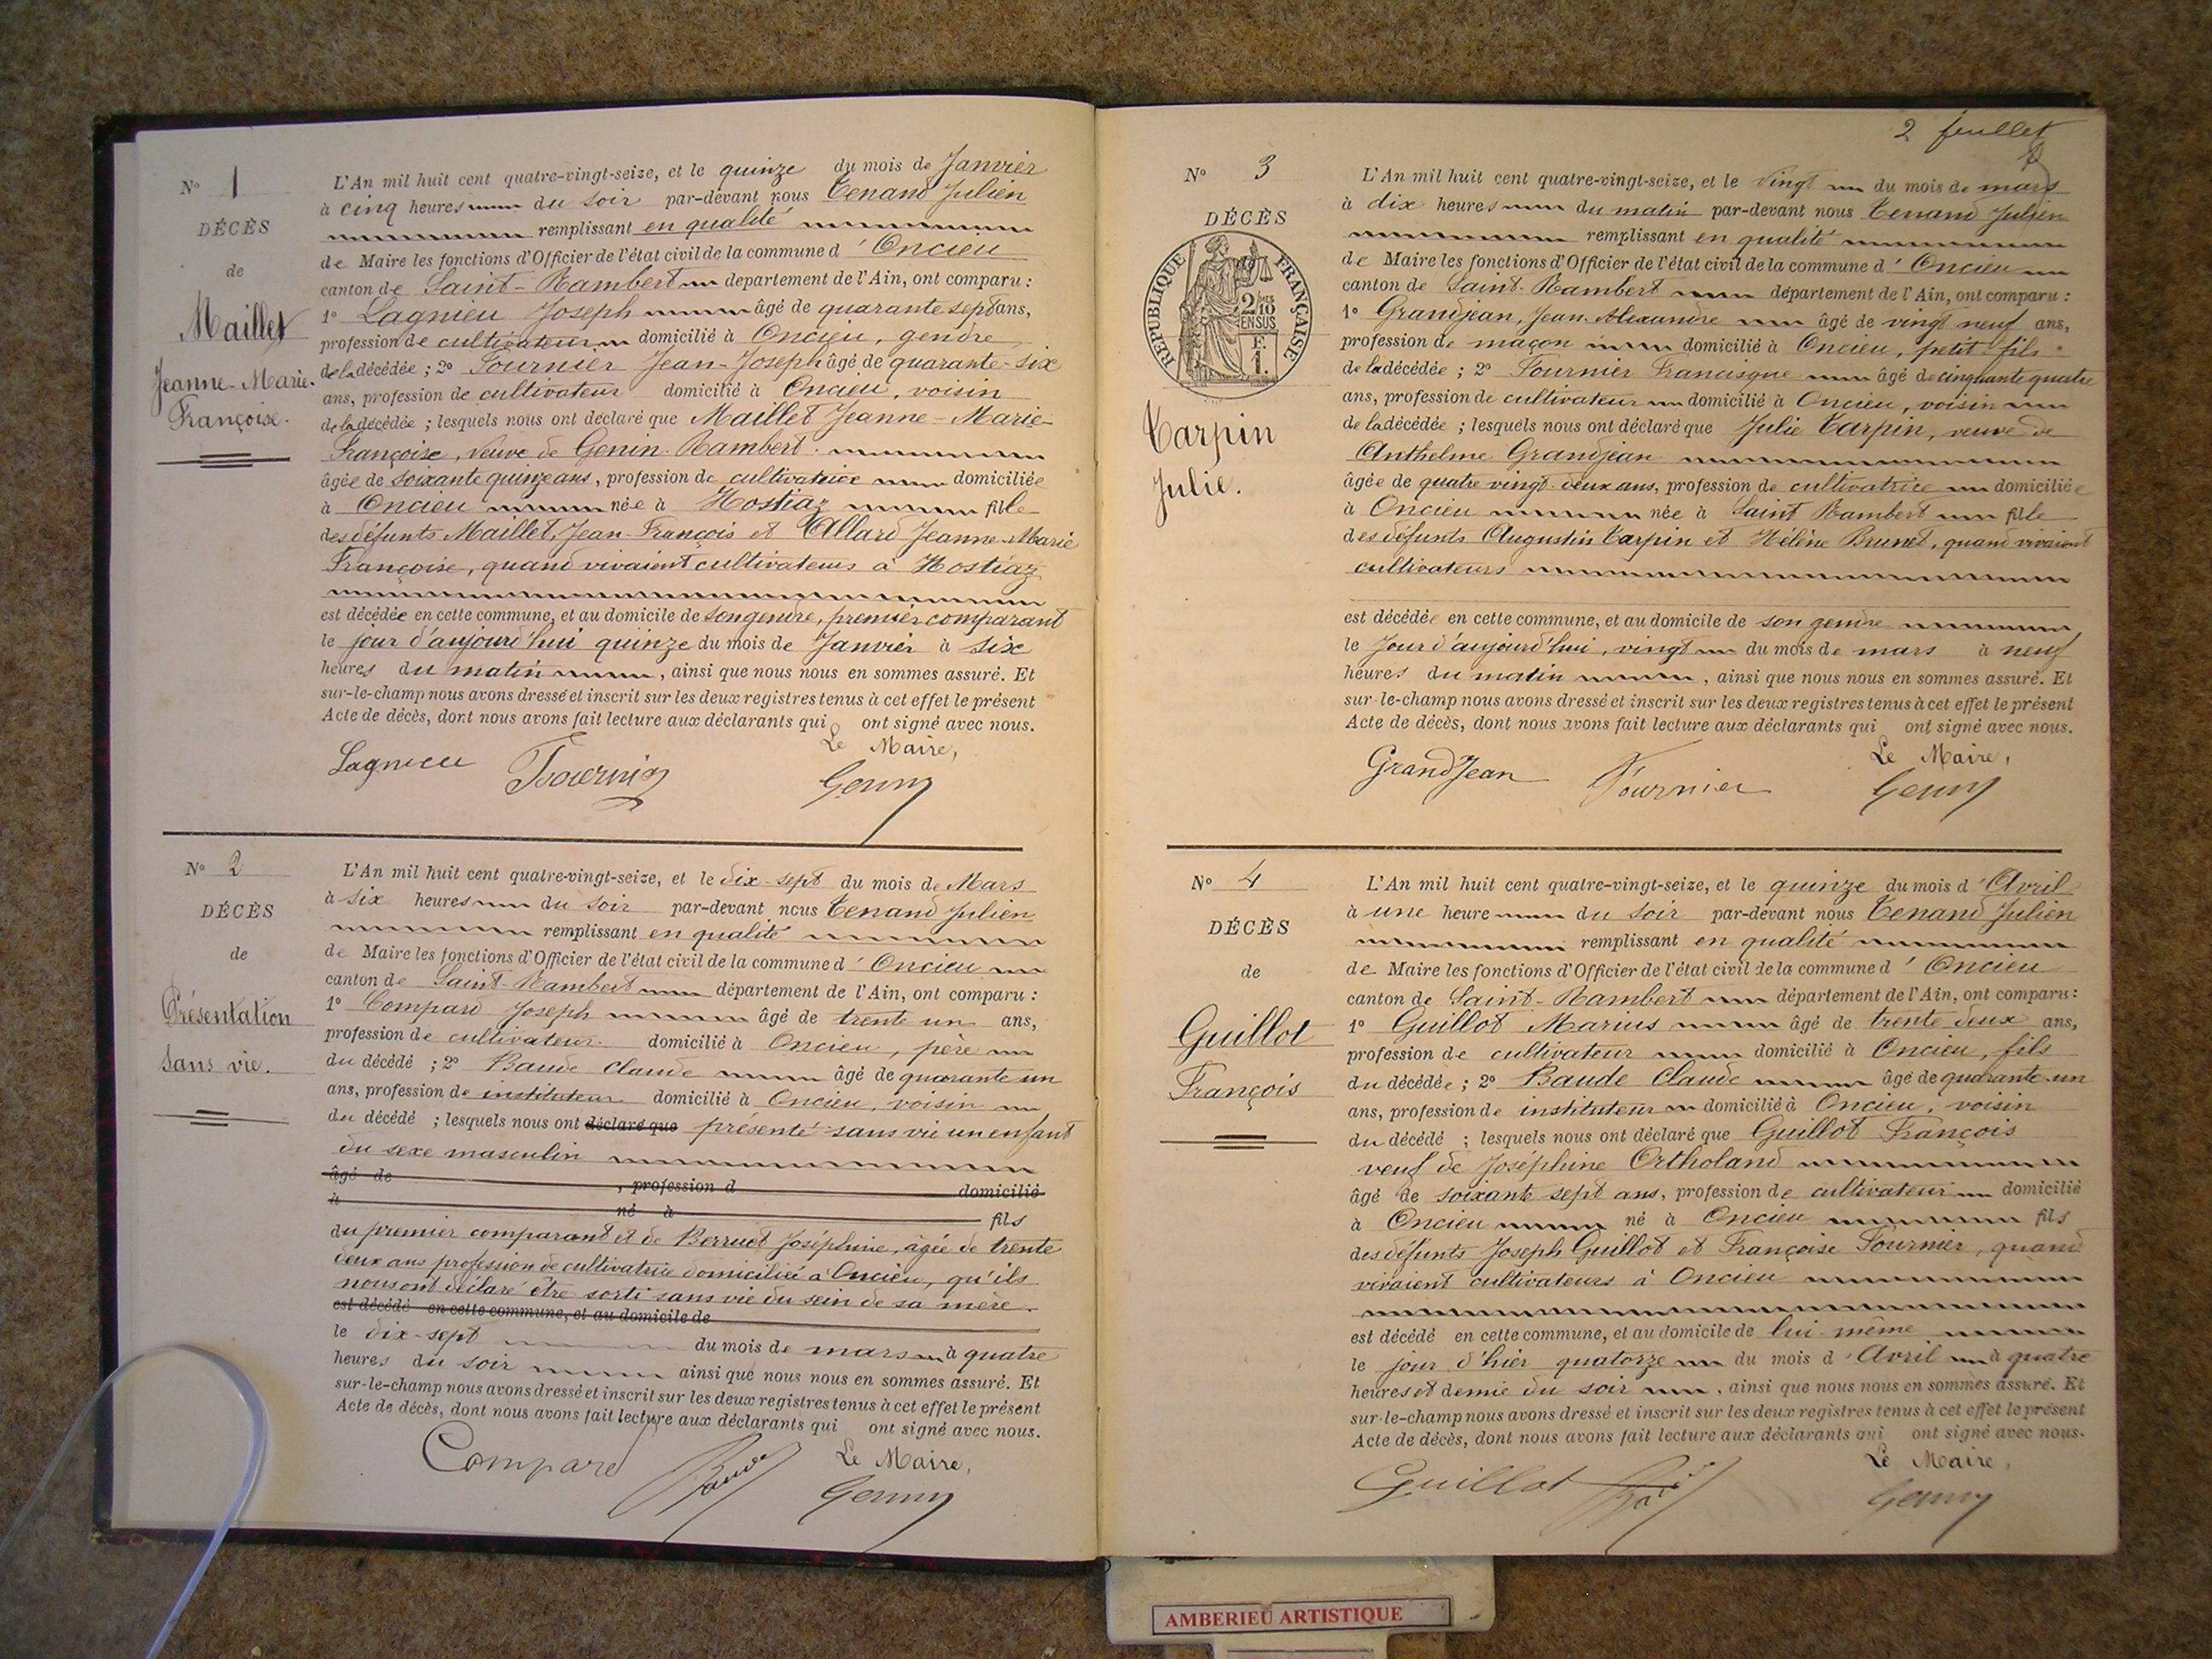 N° 1
DÉCÈS
de
Maillet
Jeanne-Marie-
Françoise.
L'An mil huit cent quatre-vingt-seize, et le quinze du mois de Janvier
à cinq heures du soir par-devant nous Tenand Julien
remplissant en qualité
de Maire les fonctions d'Officier de l'état civil de la commune d'Oncieu
canton de Saint-Rambert département de l'Ain, ont comparu :
1° Lagnieu Joseph âgé de quarante sept ans,
profession de cultivateur domicilié à Oncieu, gendre
de la décédée ; 2° Fournier Jean-Joseph âgé de quarante-six
ans, profession de cultivateur domicilié à Oncieu, voisin
de la décédée ; lesquels nous ont déclaré que Maillet Jeanne-Marie-
Françoise, veuve de Genin Rambert
âgée de soixante quinze ans, profession de cultivatrice domiciliée
à Oncieu née à Hostiaz fille
des défunts Maillet Jean-François et Allard Jeanne-Marie
Françoise, quand vivaient cultivateurs à Hostiaz
est décédée en cette commune, et au domicile de son gendre, premier comparant
le jour d'aujourd'hui quinze du mois de Janvier à six
heures du matin, ainsi que nous nous en sommes assuré. Et
sur-le-champ nous avons dressé et inscrit sur les deux registres tenus à cet effet le présent
Acte de décès, dont nous avons fait lecture aux déclarants qui ont signé avec nous.
Le Maire,
Lagnieu Fournier
N° 2
DÉCÈS
de
Présentation
sans vie.
L'An mil huit cent quatre-vingt-seize, et le dix-sept du mois de Mars
à six heures du soir par-devant nous Tenand Julien
remplissant en qualité
de Maire les fonctions d'Officier de l'état civil de la commune d'Oncieu
canton de Saint-Rambert département de l'Ain, ont comparu :
1° Compard Joseph âgé de trente un ans,
profession de cultivateur domicilié à Oncieu, père
du décédé ; 2° Baude Claude âgé de quarante un
ans, profession de instituteur domicilié à Oncieu, voisin
du décédé ; lesquels nous ont déclaré que présenté sans vie un enfant
du sexe masculin
âgé de , profession d domicilié
à né à fils
du premier comparant et de Berruet Joséphine, âgée de trente
deux ans profession de cultivatrice domiciliée à Oncieu, qu'ils
nous ont déclaré être sorti sans vie du sein de sa mère.
est décédé en cette commune, et au domicile de
le dix-sept du mois de mars à quatre
heures du soir ainsi que nous nous en sommes assuré. Et
sur-le-champ nous avons dressé et inscrit sur les deux registres tenus à cet effet le présent
Acte de décès, dont nous avons fait lecture aux déclarants qui ont signé avec nous.
Le Maire,
Compard Baude
2 feuillet
N° 3
DÉCÈS
RÉPUBLIQUE FRANÇAISE
2/10
EN SUS
F.
1.
Tarpin
Julie.
L'An mil huit cent quatre-vingt-seize, et le vingt du mois de mars
à dix heures du matin par-devant nous Tenand Julien
remplissant en qualité
de Maire les fonctions d'Officier de l'état civil de la commune d'Oncieu
canton de Saint-Rambert département de l'Ain, ont comparu :
1° Grandjean, Jean-Alexandre âgé de vingt neuf ans,
profession de maçon domicilié à Oncieu, petit-fils
de la décédée ; 2° Fournier Francisque âgé de cinquante quatre
ans, profession de cultivateur domicilié à Oncieu, voisin
de la décédée ; lesquels nous ont déclaré que Julie Tarpin, veuve de
Anthelme Grandjean
âgée de quatre vingt-deux ans, profession de cultivatrice domiciliée
à Oncieu née à Saint Rambert fille
des défunts Augustin Tarpin et Hélène Brunet, quand vivaient
cultivateurs
est décédée en cette commune, et au domicile de son gendre
le Jour d'aujourd'hui, vingt du mois de mars à neuf
heures du matin, ainsi que nous nous en sommes assuré. Et
sur-le-champ nous avons dressé et inscrit sur les deux registres tenus à cet effet le présent
Acte de décès, dont nous avons fait lecture aux déclarants qui ont signé avec nous.
Le Maire,
GrandJean Fournier
N° 4
DÉCÈS
de
Guillot
François
L'An mil huit cent quatre-vingt-seize, et le quinze du mois d'Avril
à une heure du soir par-devant nous Tenand Julien
remplissant en qualité
de Maire les fonctions d'Officier de l'état civil de la commune d'Oncieu
canton de Saint-Rambert département de l'Ain, ont comparu :
1° Guillot Marius âgé de trente deux ans,
profession de cultivateur domicilié à Oncieu, fils
du décédée ; 2° Baude Claude âgé de quarante-un
ans, profession de instituteur domicilié à Oncieu, voisin
du décédé ; lesquels nous ont déclaré que Guillot François
veuf de Joséphine Ortholand
âgé de soixante sept ans, profession de cultivateur domicilié
à Oncieu né à Oncieu fils
des défunts Joseph Guillot et Françoise Fournier, quand
vivaient cultivateurs à Oncieu
est décédé en cette commune, et au domicile de lui-même
le jour d'hier quatorze du mois d'Avril à quatre
heures et demie du soir, ainsi que nous nous en sommes assuré. Et
sur-le-champ nous avons dressé et inscrit sur les deux registres tenus à cet effet le présent
Acte de décès, dont nous avons fait lecture aux déclarants qui ont signé avec nous.
Le Maire,
Guillot
AMBERIEU ARTISTIQUE